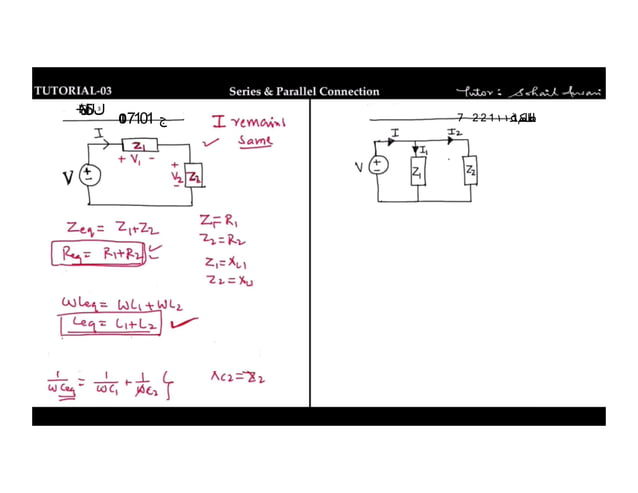 TUTORIAL-03
Series & Parallel Connection
Tutor: Sohail Ansari
I remains
same
I
Z1
+ V1 -
V
+
V2
-
Z2
Zeq = Z1+Z2
Req = R1+R2
Z1=R1
Z2=R2
Z1=XL1
WLeq = WL1+WL2
Leq = L1+L2
1/WCeq = 1/WC1 + 1/WC2
XC2=Z2
I
I2
I1
V
Z1
Z2